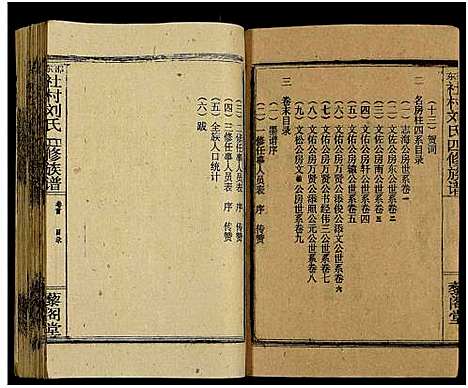 社村刘氏四修族谱
藜阁堂
(十三) 贺词
二 名房柱四系目录
(一) 志海公房世系卷一
(二) 文佐公房东公世系卷二
(三) 文佐公房南公世系卷三
(四) 文佑公房轩公世系卷四
(五) 文佑公房辕公世系卷五
(六) 文佑公房万公添俊公添文公世系卷六
(七) 文佑公房万公书经伟三公世系卷七
(八) 文佑公房万公添照公元公世系卷八
(九) 文松公房文公房世系卷九
三 卷末目录
(一) 墨谱序
(二) 一修任事人员表 序 传赞
(三) 二修任事人员表 序 传赞
(四) 三修任事人员表 序 传赞
(五) 全族人口统计
(六) 跋
社村刘氏四修族谱
卷首 目录
藜阁堂